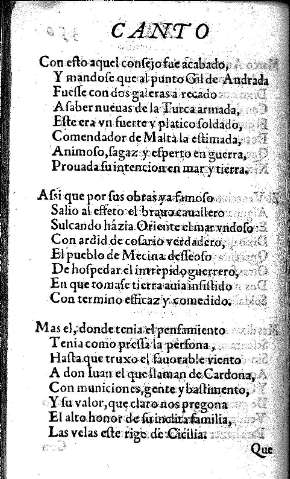 CANTO
Con esto aquel consejo fue acabado,
Y mandose que al punto Gil de Andrada
Fuesse con dos galeras a recado
A saber nueuas de la Turca armada,
Este era vn fuerte y platico soldado,
Comendador de Malta la estimada,
Animoso, sagaz y esperto en guerra,
Prouada su intencion en mar y tierra.
Assi que por sus obras ya famoso
Salio al effeto el brauo cauallero
Sulcando házia Oriente el mar vndoso
Con ardid de cosario verdadero,
El pueblo de Mecina desseoso
De hospedar el intrepido guerrero,
En que tomasse tierra auia insistido
Con termino efficaz y comedido.
Mas el, donde tenia el pensamiento
Tenia como pressa la persona,
Hasta que truxo el fauorable viento
A don Iuan el que llaman de Cardona,
Con municiones, gente y bastimento,
Y su valor, que claro nos pregona
El alto honor de su inclita familia,
Las velas este rige de Cicilia.
Que